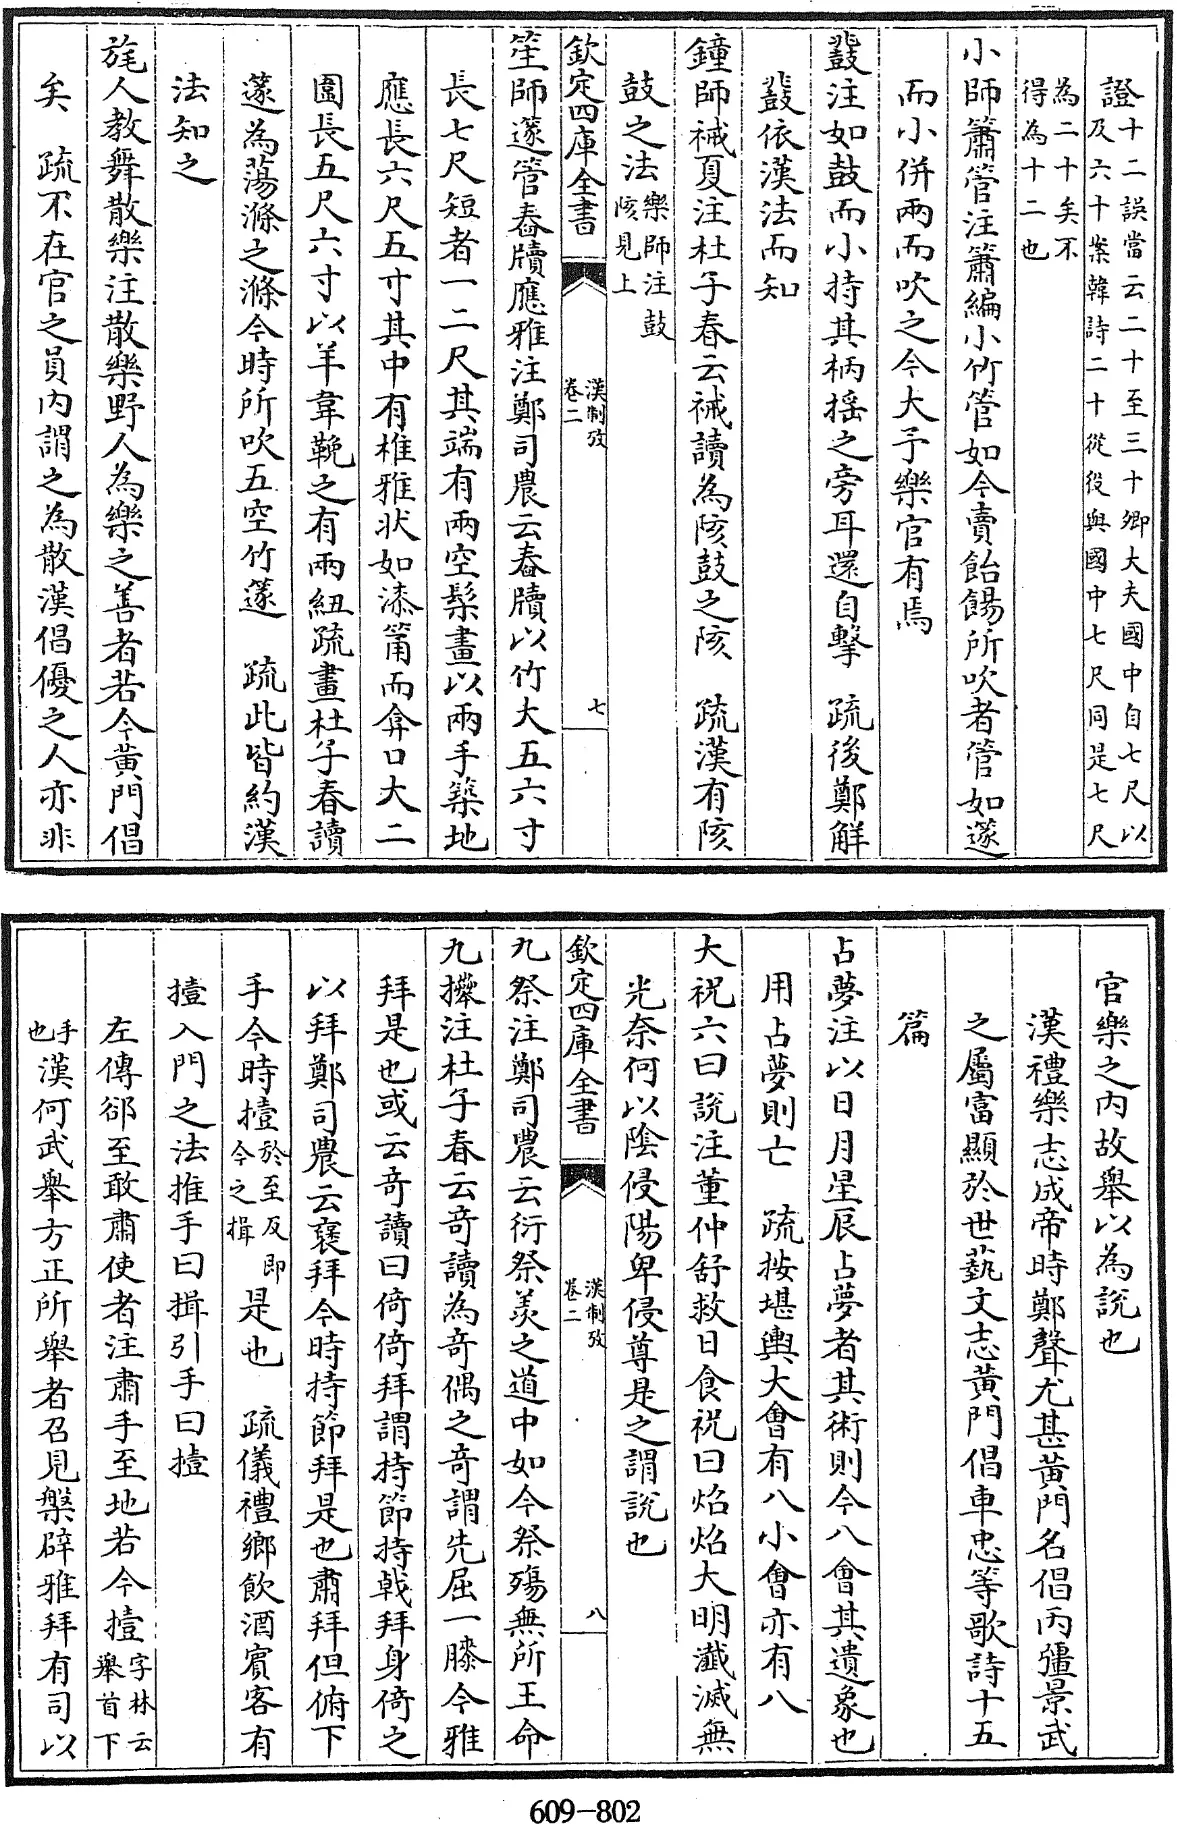 證十二誤當云二十至三十卿大夫國中自七尺以
及六十案韓詩二十從役與國中七尺同是七尺
為二十矣不
得為十二也
小師簫管注簫編小竹管如今賣飴餳所吹者管如篴
而小併兩而吹之今大予樂官有焉
鼗注如鼓而小持其柄搖之旁耳還自擊　疏後鄭解
鼗依漢法而知
鐘師祴夏注杜子春云祴讀為陔鼓之陔　疏漢有陔
鼓之法樂師注鼓
陔見上
欽定四庫全書
漢制攷
卷二
七
笙師篴管舂牘應雅注鄭司農云舂牘以竹大五六寸
長七尺短者一二尺其端有兩空髤畫以兩手築地
應長六尺五寸其中有椎雅狀如漆筩而弇口大二
圍長五尺六寸以羊韋鞔之有兩紐疏畫杜子春讀
篴為蕩滌之滌今時所吹五空竹篴　疏此皆約漢
法知之
旄人教舞散樂注散樂野人為樂之善者若今黃門倡
矣　疏不在官之員內謂之為散漢倡優之人亦非
官樂之內故舉以為說也
漢禮樂志成帝時鄭聲尤甚黃門名倡丙彊景武
之屬富顯於世藝文志黃門倡車忠等歌詩十五
篇
占夢注以日月星辰占夢者其術則今八會其遺象也
用占夢則亡　疏按堪輿大會有八小會亦有八
大祝六曰說注董仲舒救日食祝曰炤炤大明瀸滅無
光奈何以陰侵陽卑侵尊是之謂說也
欽定四庫全書
漢制攷
卷二
八
九祭注鄭司農云衍祭羨之道中如今祭殤無所王命
九𢷎注杜子春云奇讀為奇偶之奇謂先屈一膝今雅
拜是也或云奇讀曰倚倚拜謂持節持戟拜身倚之
以拜鄭司農云襃拜今時持節拜是也肅拜但俯下
手今時撎於至反即
今之揖
是也　疏儀禮鄉飲酒賓客有
撎入門之法推手曰揖引手曰撎
左傳郤至敢肅使者注肅手至地若今撎字林云
舉首下
手
也
漢何武舉方正所舉者召見槃辟雅拜有司以
609-802